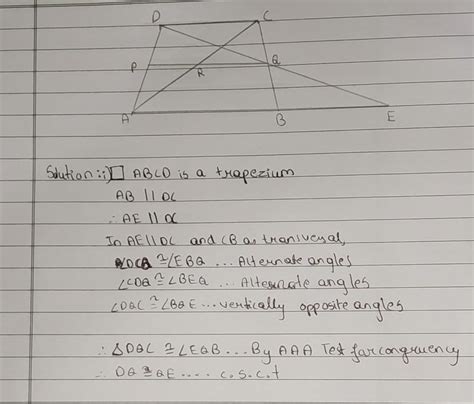 D C
P R Q
A B E
Solution:i) □ ABCD is a trapezium
AB || DC
∴ AE || DC
In AE || DC and CB as tranivesyal,
∠DCQ ≅ ∠EBQ ... Alternate angles
∠CDQ ≅ ∠BEQ ... Alternate angles
∠DQC ≅ ∠BQE ... vertically opposite angles
∴ △DQC ≅ ∠EQB ... By AAA Test for congruency
∴ DQ ≅ QE .... c.s.c.t